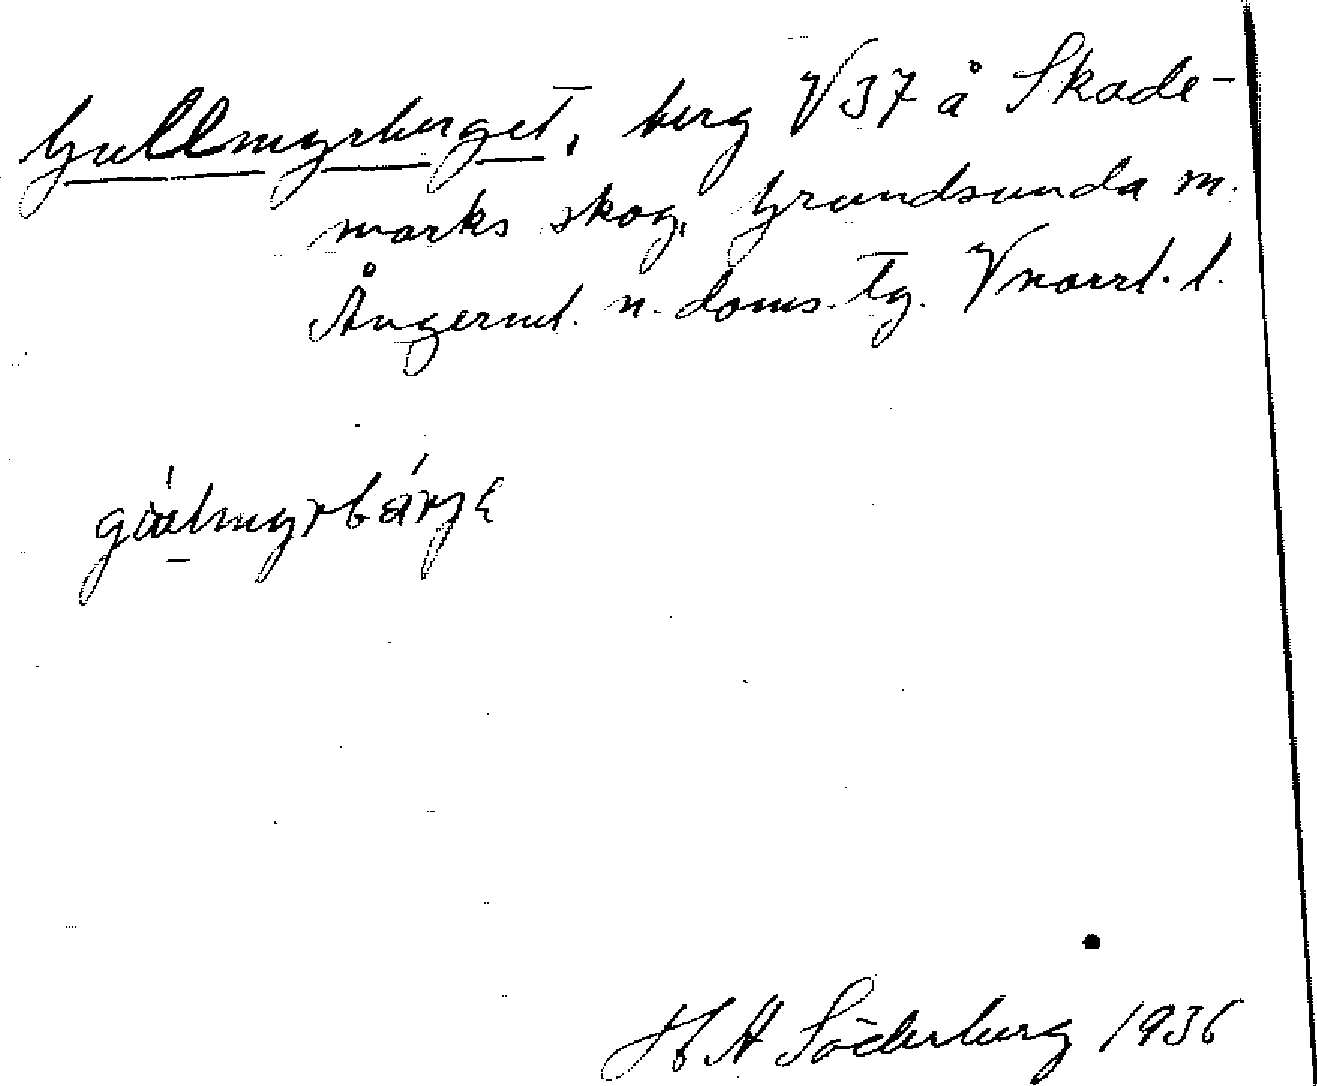 Gullmyrberget, berg V37 å Skade-
marks skog, Grundsunda sn.
Ångerml. n. doms. tg. Vnorrl. l.
H A Söderberg 1936